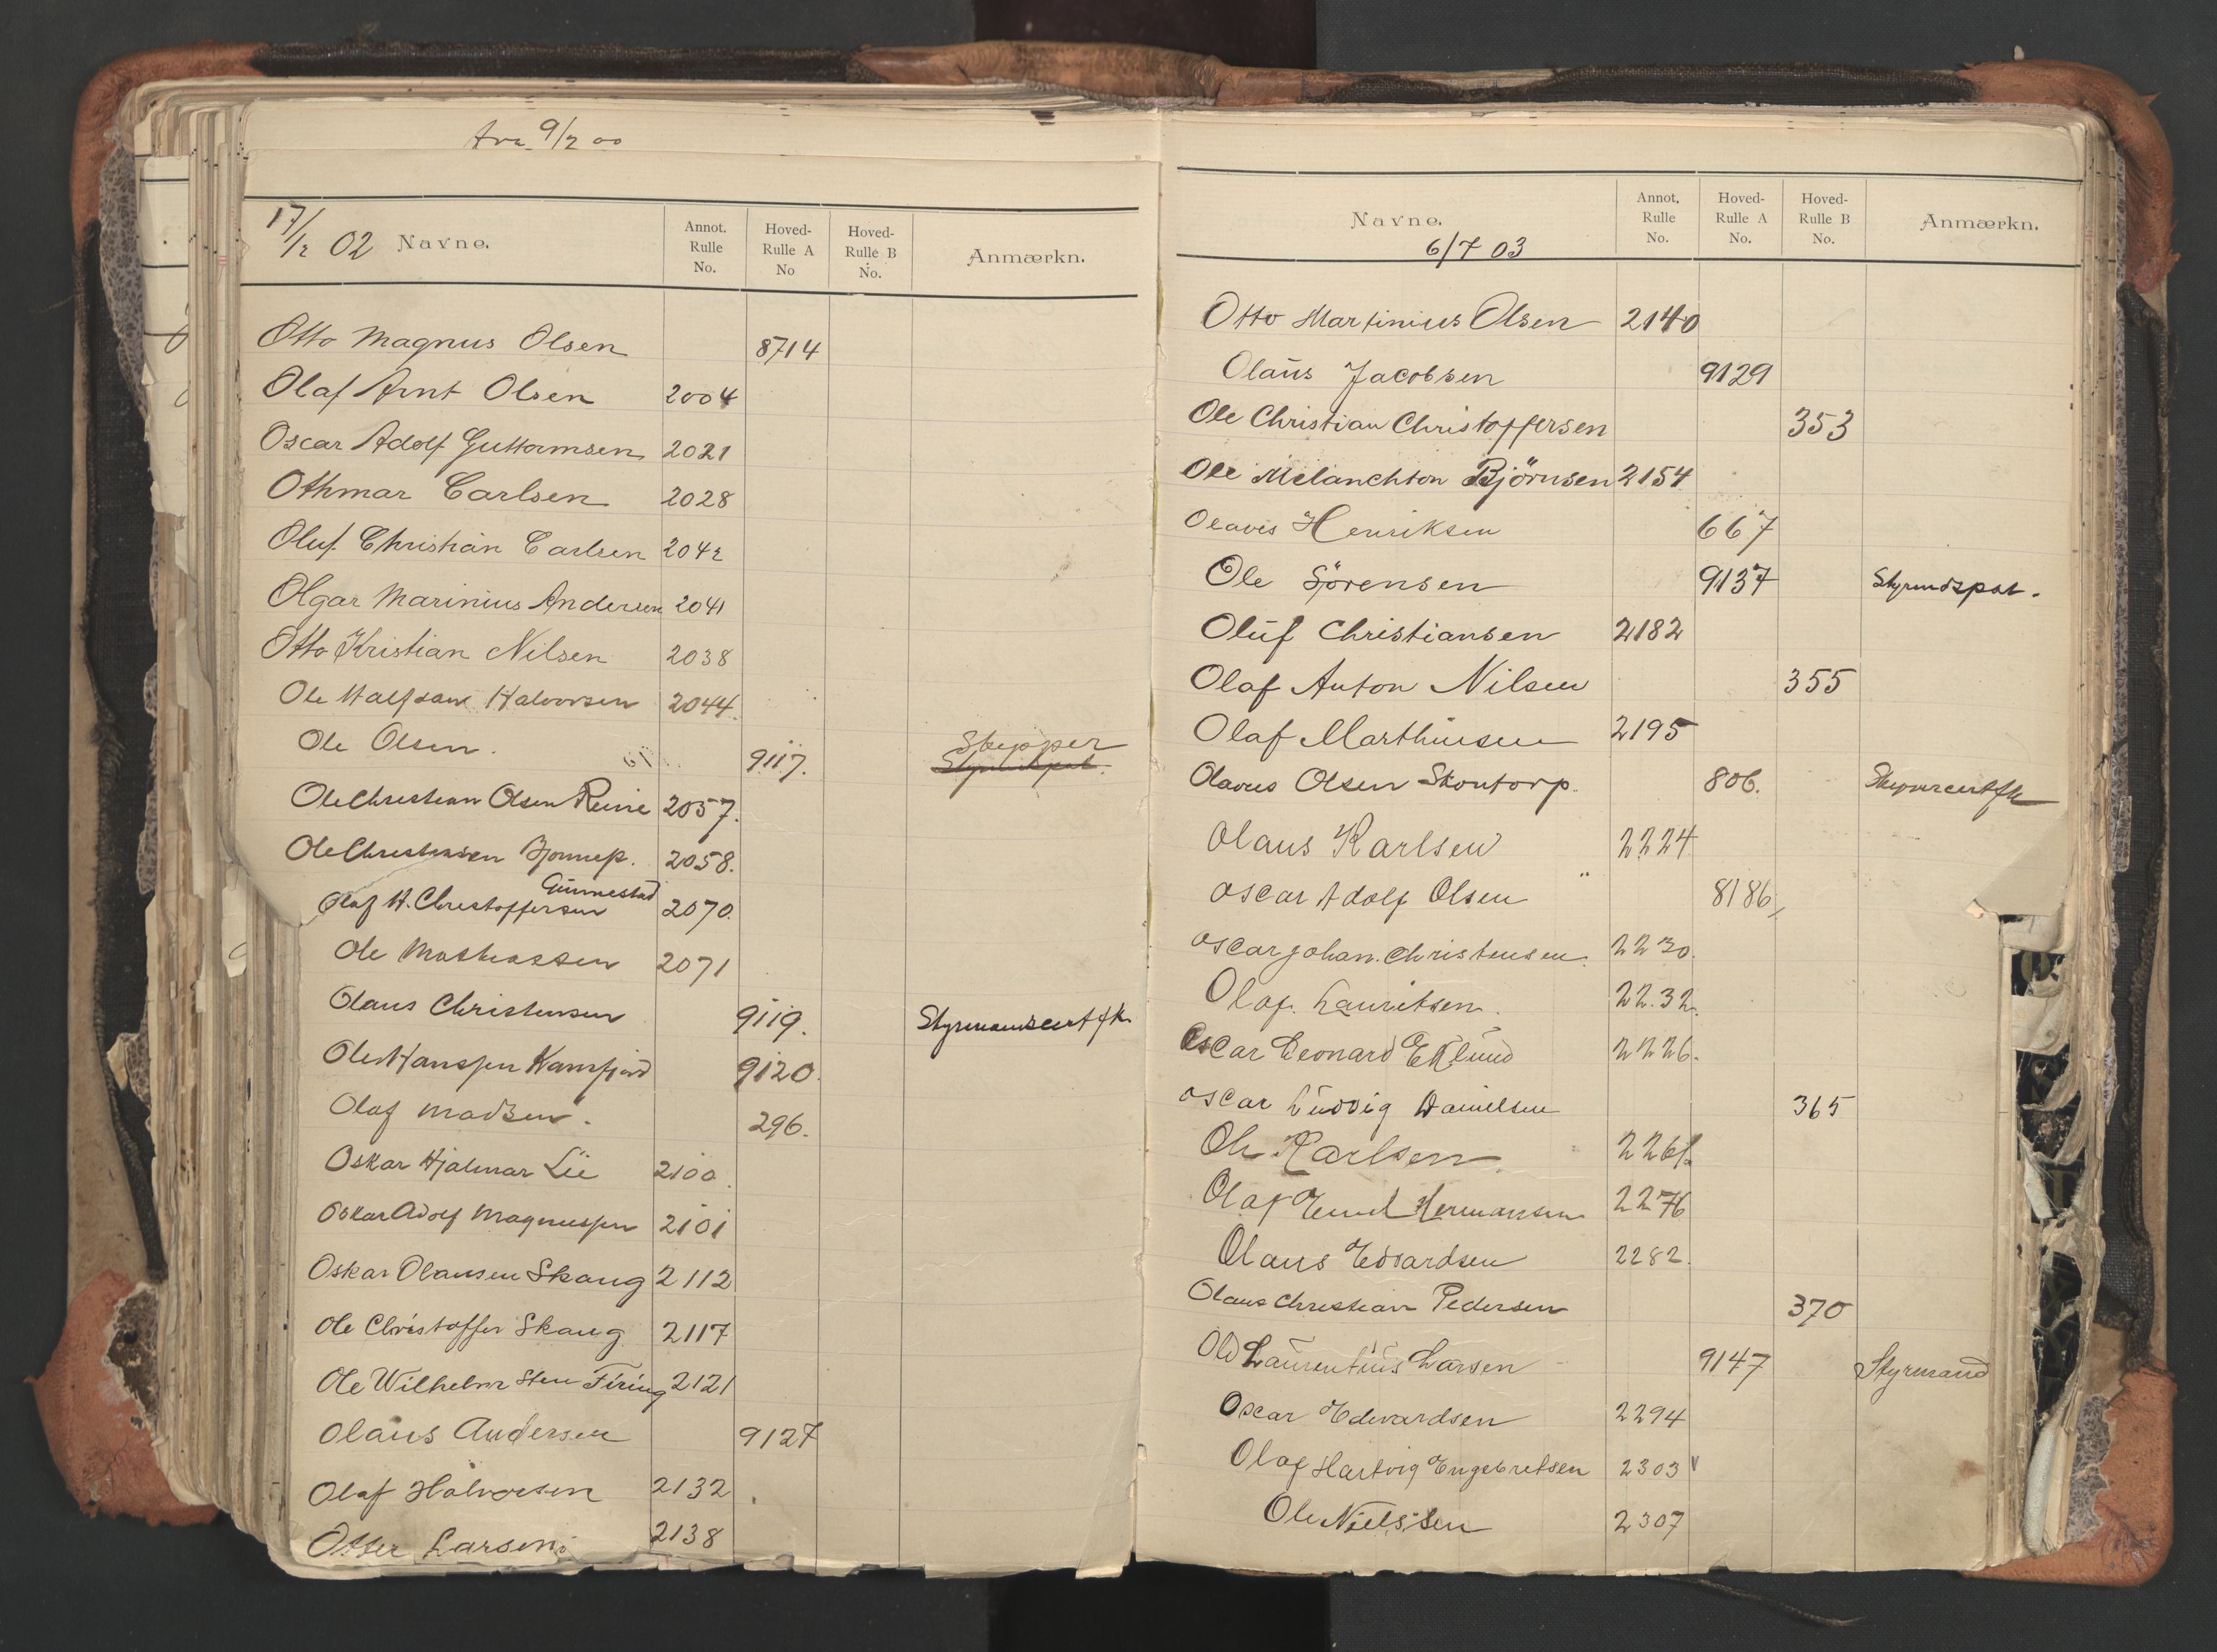 fra 9/2 00
17/12 02 Navne. Annot. Rulle No. Hoved-Rulle A No Hoved-Rulle B No. Anmærkn.
Otto Magnus Olsen 8714
Olaf Arnt Olsen 2004
Oscar Adolf Guttormsen 2021
Othmar Carlsen 2028
Oluf Christian Carlsen 2042
Olgar Marinius Andersen 2041
Otto Kristian Nilsen 2038
Ole Halfdan Halvorsen 2044.
Ole Olsen. 9117. Skipper
Ole Christian Olsen 2057.
Ole Christensen 2058.
Gunnestad
Olaf H. Christoffersen 2070.
Ole Mathiassen 2071
Olaus Christensen 9119. Styrmandscertfk.
Ole Hanssen Kamfjord 9120.
Olaf Madsen. 296.
Oskar Hjalmar Lie 2100.
Oskar Adolf Magnussen 2101
Oskar Olausen Skaug 2112
Ole Christoffer Skaug 2117
Ole Wilhelm Sten Firing 2121
Olaus Andersen 9127
Olaf Halvorsen 2132
Otter Larsen 2138
Navne. Annot. Rulle No. Hoved-Rulle A No. Hoved-Rulle B No. Anmærkn.
6/7 03
Otto Martinius Olsen 2140
Olaus Jacobsen 9129
Ole Christian Christoffersen 353
Ole Melanchton Björnsen 2154
Olavus Henriksen 667
Ole Sörensen 9137 Styrmdspat.
Oluf Christiansen 2182
Olaf Anton Nilsen 355
Olaf Marthinsen 2195
Olavus Olsen Skontorp. 806.
Olaus Karlsen 2224
Oscar Adolf Olsen 8186
Oscar Johan. Christensen. 2230.
Olaf. Lauritsen. 2232.
Oscar Leonard Eklund 2226.
Oscar Ludvig Danielsen 365
Ole Karlsen. 2261.
Olaf Emil Hermansen 2276
Olaus Edvardsen 2282.
Olaus Christian Pedersen 370
Laurentius Larsen 9147 Styrmand
Oscar Edwardsen 2294
Olaf Hartvig Engebretsen 2303
Ole Nielsen 2307